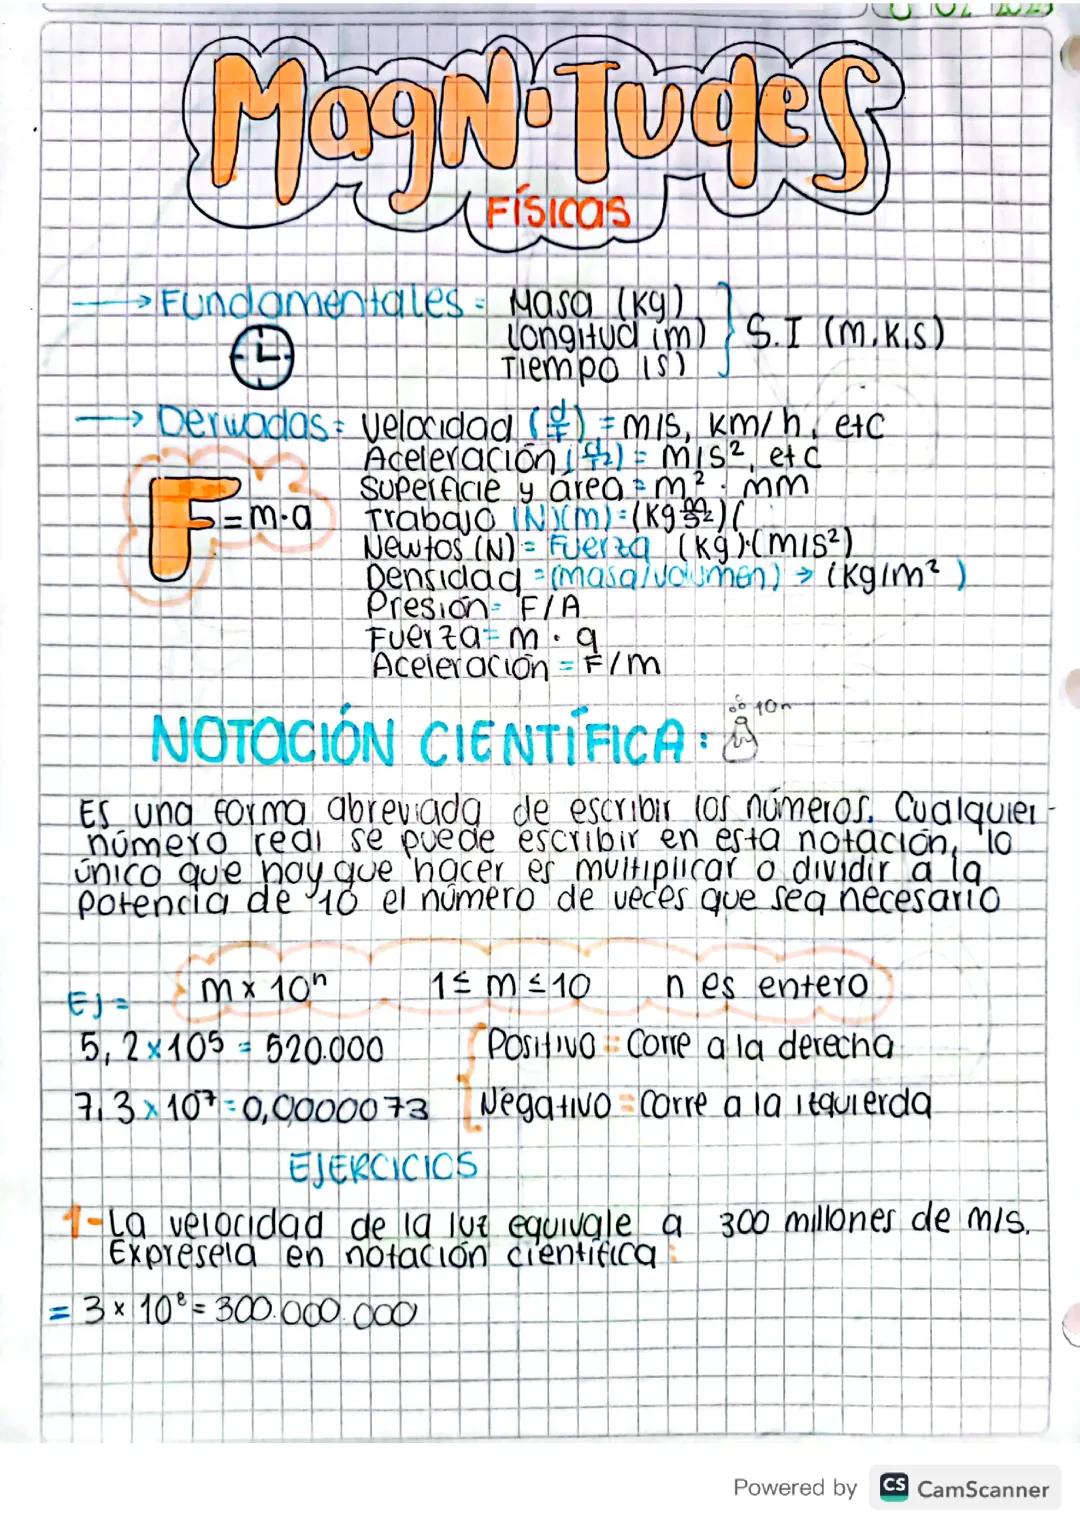 MagNiTudes
FÍSICAS
→ Fundamentales = Masa (kg)
Longitud (m) } S.I (m.k.s)
Tiempo (s)
→ Derivadas = Velocidad (d/t) = m/s, km/h, etc
Aceleración (d/t2) = m/s², etc
Superficie y área = m² . mm
F = m.a
Trabajo (N)(m) = (kg m/s2)(
Newtos (N) = Fuerza (kg).(m/s²)
Densidad = (masa/volumen) → (kg/m² )
Presión = F/A
Fuerza = m . a
Aceleración = F/m
NOTACIÓN CIENTÍFICA: 10n
Es una forma abreviada de escribir los números. Cualquier-
número real se puede escribir en esta notación, lo
único que hay que hacer es multiplicar o dividir a la
potencia de 10 el número de veces que sea necesario
m x 10ⁿ 1 ≤ m ≤ 10 n es entero
Ej =
5,2 x 10⁵ = 520.000 Positivo = Corre a la derecha
7,3 x 10⁷ = 0,0000073 Negativo = Corre a la izquierda
EJERCICIOS
1- La velocidad de la luz equivale a 300 millones de m/s.
Expresela en notación científica:
= 3 x 10⁸ = 300.000.000
Powered by CS CamScanner